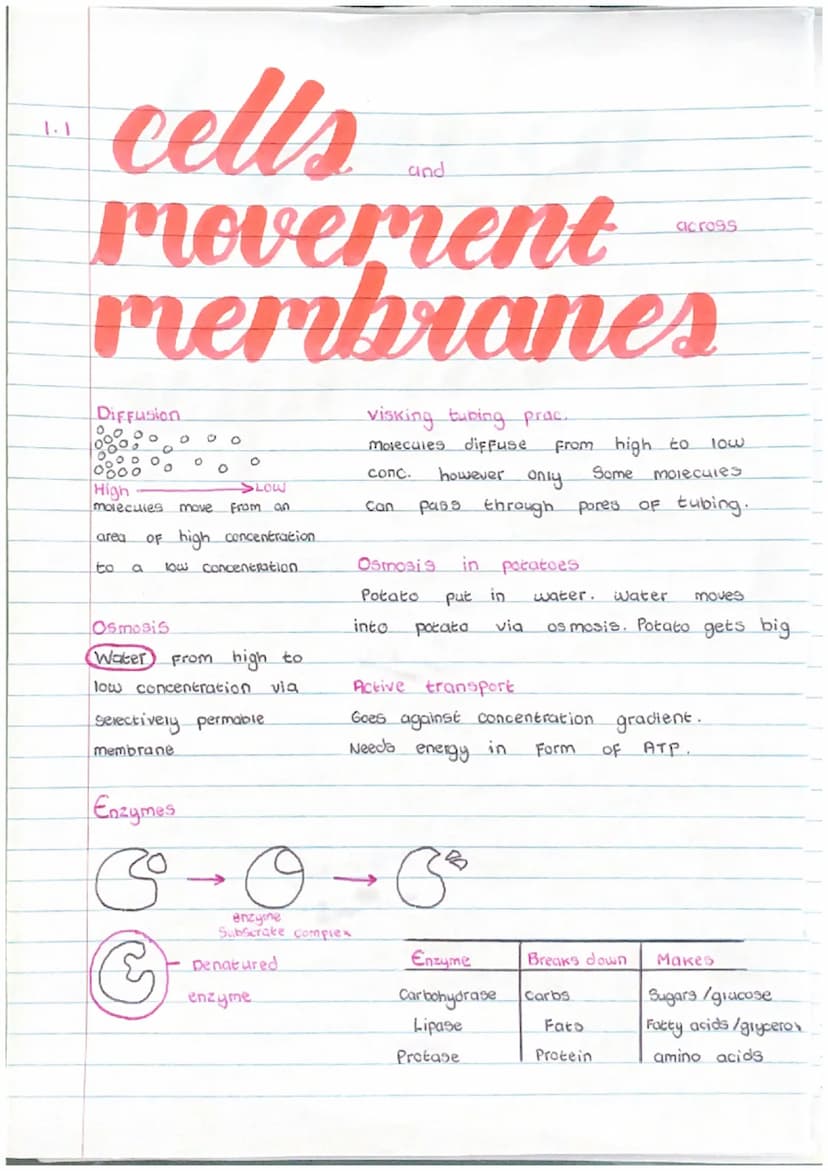 1.1
cells and
movement across
membranes
Diffusion
High → Low
molecules move from an
area of high concentration
to a low concentration
Osmosis
Water from high to
low concentration via
selectively permable
membrane
visking tubing prac.
molecules diffuse from high to low
conc. however only some molecules
can pass through pores of tubing.
Osmosis in potatoes
Potato put in water. Water moves
into potato via osmosis. Potato gets big
Active transport
Goes against concentration gradient.
Needs energy in form of ATP.
Enzymes
enzyme
substrate complex
Denatured
enzyme
Enzyme Breaks down Makes
Carbohydrase Carbs Sugars/glucose
Lipase Fats Fatty acids/glycerol
Protase Protein amino acids